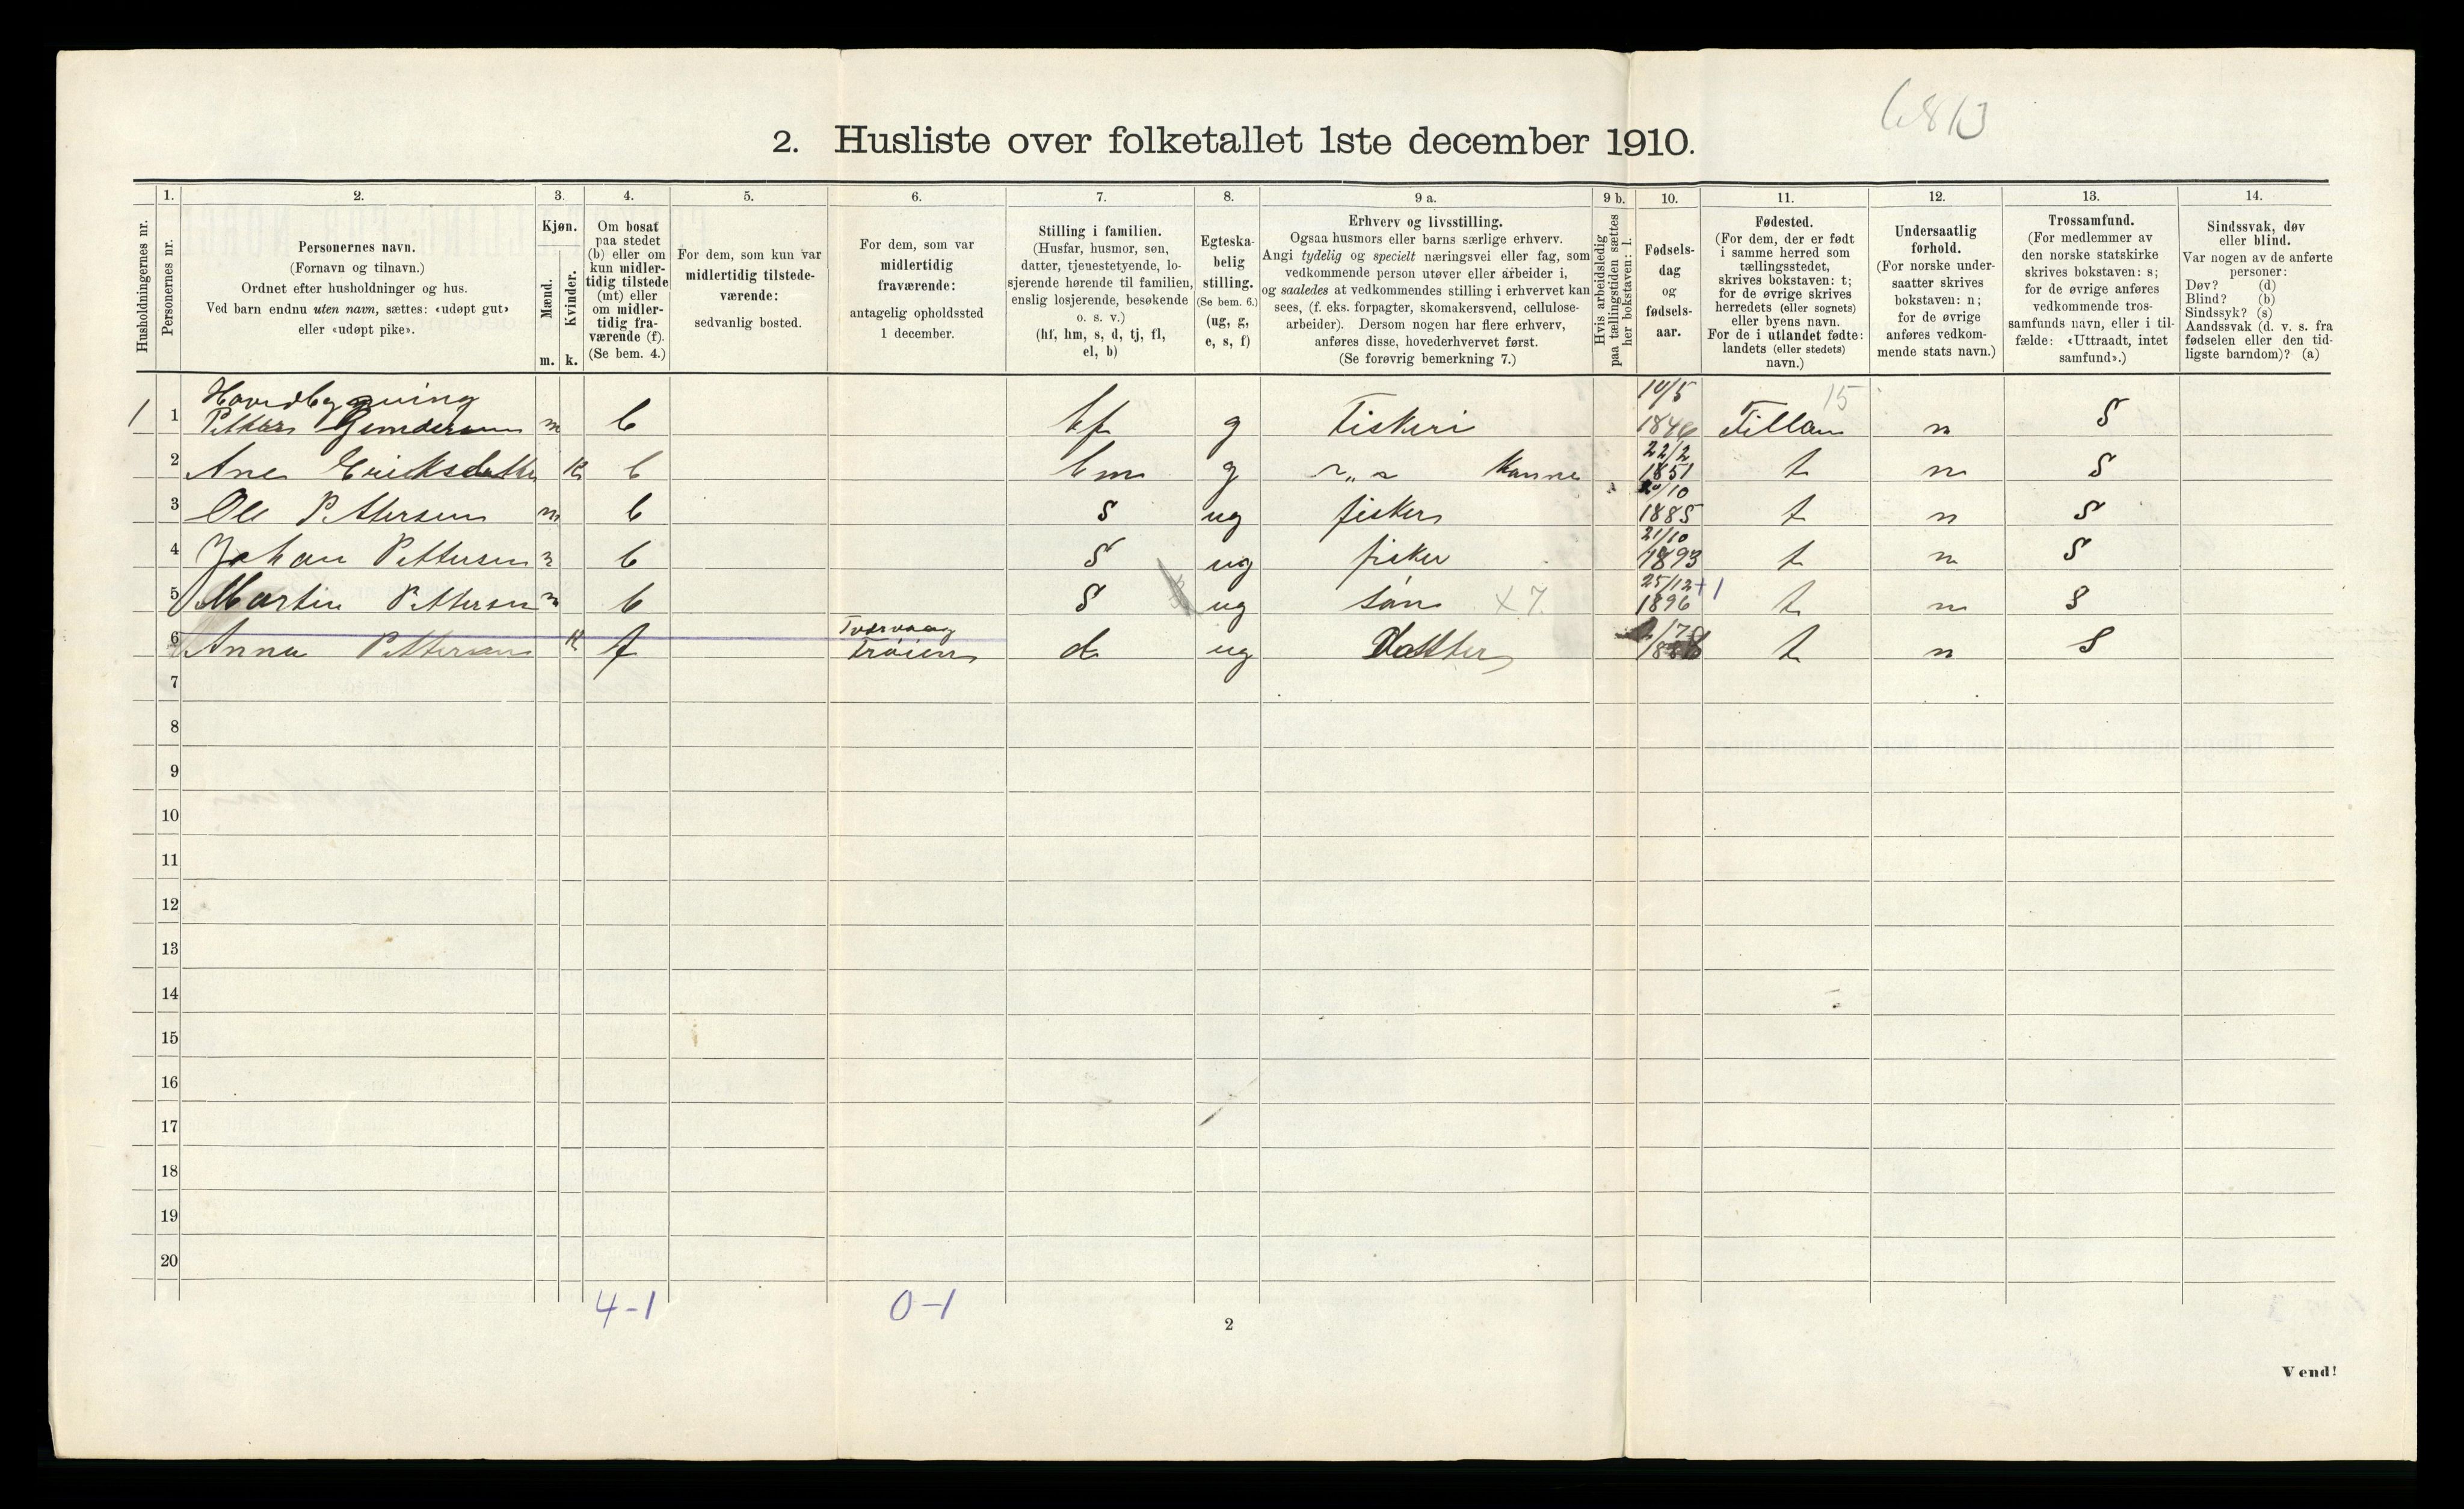 6813
2. Husliste over folketallet 1ste december 1910.
Husholdningernes nr.
1.
Personernes nr.
2.
Personernes navn.
(Fornavn og tilnavn.)
Ordnet efter husholdninger og hus.
Ved barn endnu uten navn, sættes: «udøpt gut»
eller «udøpt pike».
3.
Kjøn.
Mænd.
m.
Kvinder.
k.
4.
Om bosat
paa stedet
(b) eller om
kun midler-
tidig tilstede
(mt) eller
om midler-
tidig fra-
værende (f).
(Se bem. 4.)
5.
For dem, som kun var
midlertidig tilstede-
værende:
sedvanlig bosted.
6.
For dem, som var
midlertidig
fraværende:
antagelig opholdssted
1 december.
7.
Stilling i familien.
(Husfar, husmor, søn,
datter, tjenestetyende, lo-
sjerende hørende til familien,
enslig losjerende, besøkende
o. s. v.)
(hf, hm, s, d, tj, fl,
el, b)
8.
Egteska-
belig
stilling.
(Se bem. 6.)
(ug, g,
e, s, f)
9 a.
Erhverv og livsstilling.
Ogsaa husmors eller barns særlige erhverv.
Angi tydelig og specielt næringsvei eller fag, som
vedkommende person utøver eller arbeider i,
og saaledes at vedkommendes stilling i erhvervet kan
sees, (f. eks. forpagter, skomakersvend, cellulose-
arbeider). Dersom nogen har flere erhverv,
anføres disse, hovederhvervet først.
(Se forøvrig bemerkning 7.)
9 b.
Hvis arbeidsledig
paa tællingstiden sættes
her bokstaven: l.
10.
Fødsels-
dag
og
fødsels-
aar.
11.
Fødested.
(For dem, der er født
i samme herred som
tællingsstedet,
skrives bokstaven: t;
for de øvrige skrives
herredets (eller sognets)
eller byens navn.
For de i utlandet fødte:
landets (eller stedets)
navn.)
12.
Undersaatlig
forhold.
(For norske under-
saatter skrives
bokstaven: n;
for de øvrige
anføres vedkom-
mende stats navn.)
13.
Trossamfund.
(For medlemmer av
den norske statskirke
skrives bokstaven: s;
for de øvrige anføres
vedkommende tros-
samfunds navn, eller i til-
fælde: «Uttraadt, intet
samfund».)
14.
Sindssvak, døv
eller blind.
Var nogen av de anførte
personer:
Døv? (d)
Blind? (b)
Sindssyk? (s)
Aandssvak (d. v. s. fra
fødselen eller den tid-
ligste barndom)? (a)
Hovedbygning 14/5 15
1 1 Petter Gundersen m b hf g Fiskeri 1846 Fillan n S
22/2
2 Ane Ericksdatter k b hm g Kanne 1851 t n S
20/10
3 Ole Pettersen m b S ug fisker 1885 t n S
21/10
4 Johan Pettersen m b S ug fisker 1893 t n S
25/12 +1
5 Martin Pettersen m b S ug søn x7 1896 t n S
Tvervaag
6 Anna Pettersen k f Trøien d ug Datter t n S
7
8
9
10
11
12
13
14
15
16
17
18
19
20
4-1 0-1
2
Vend!